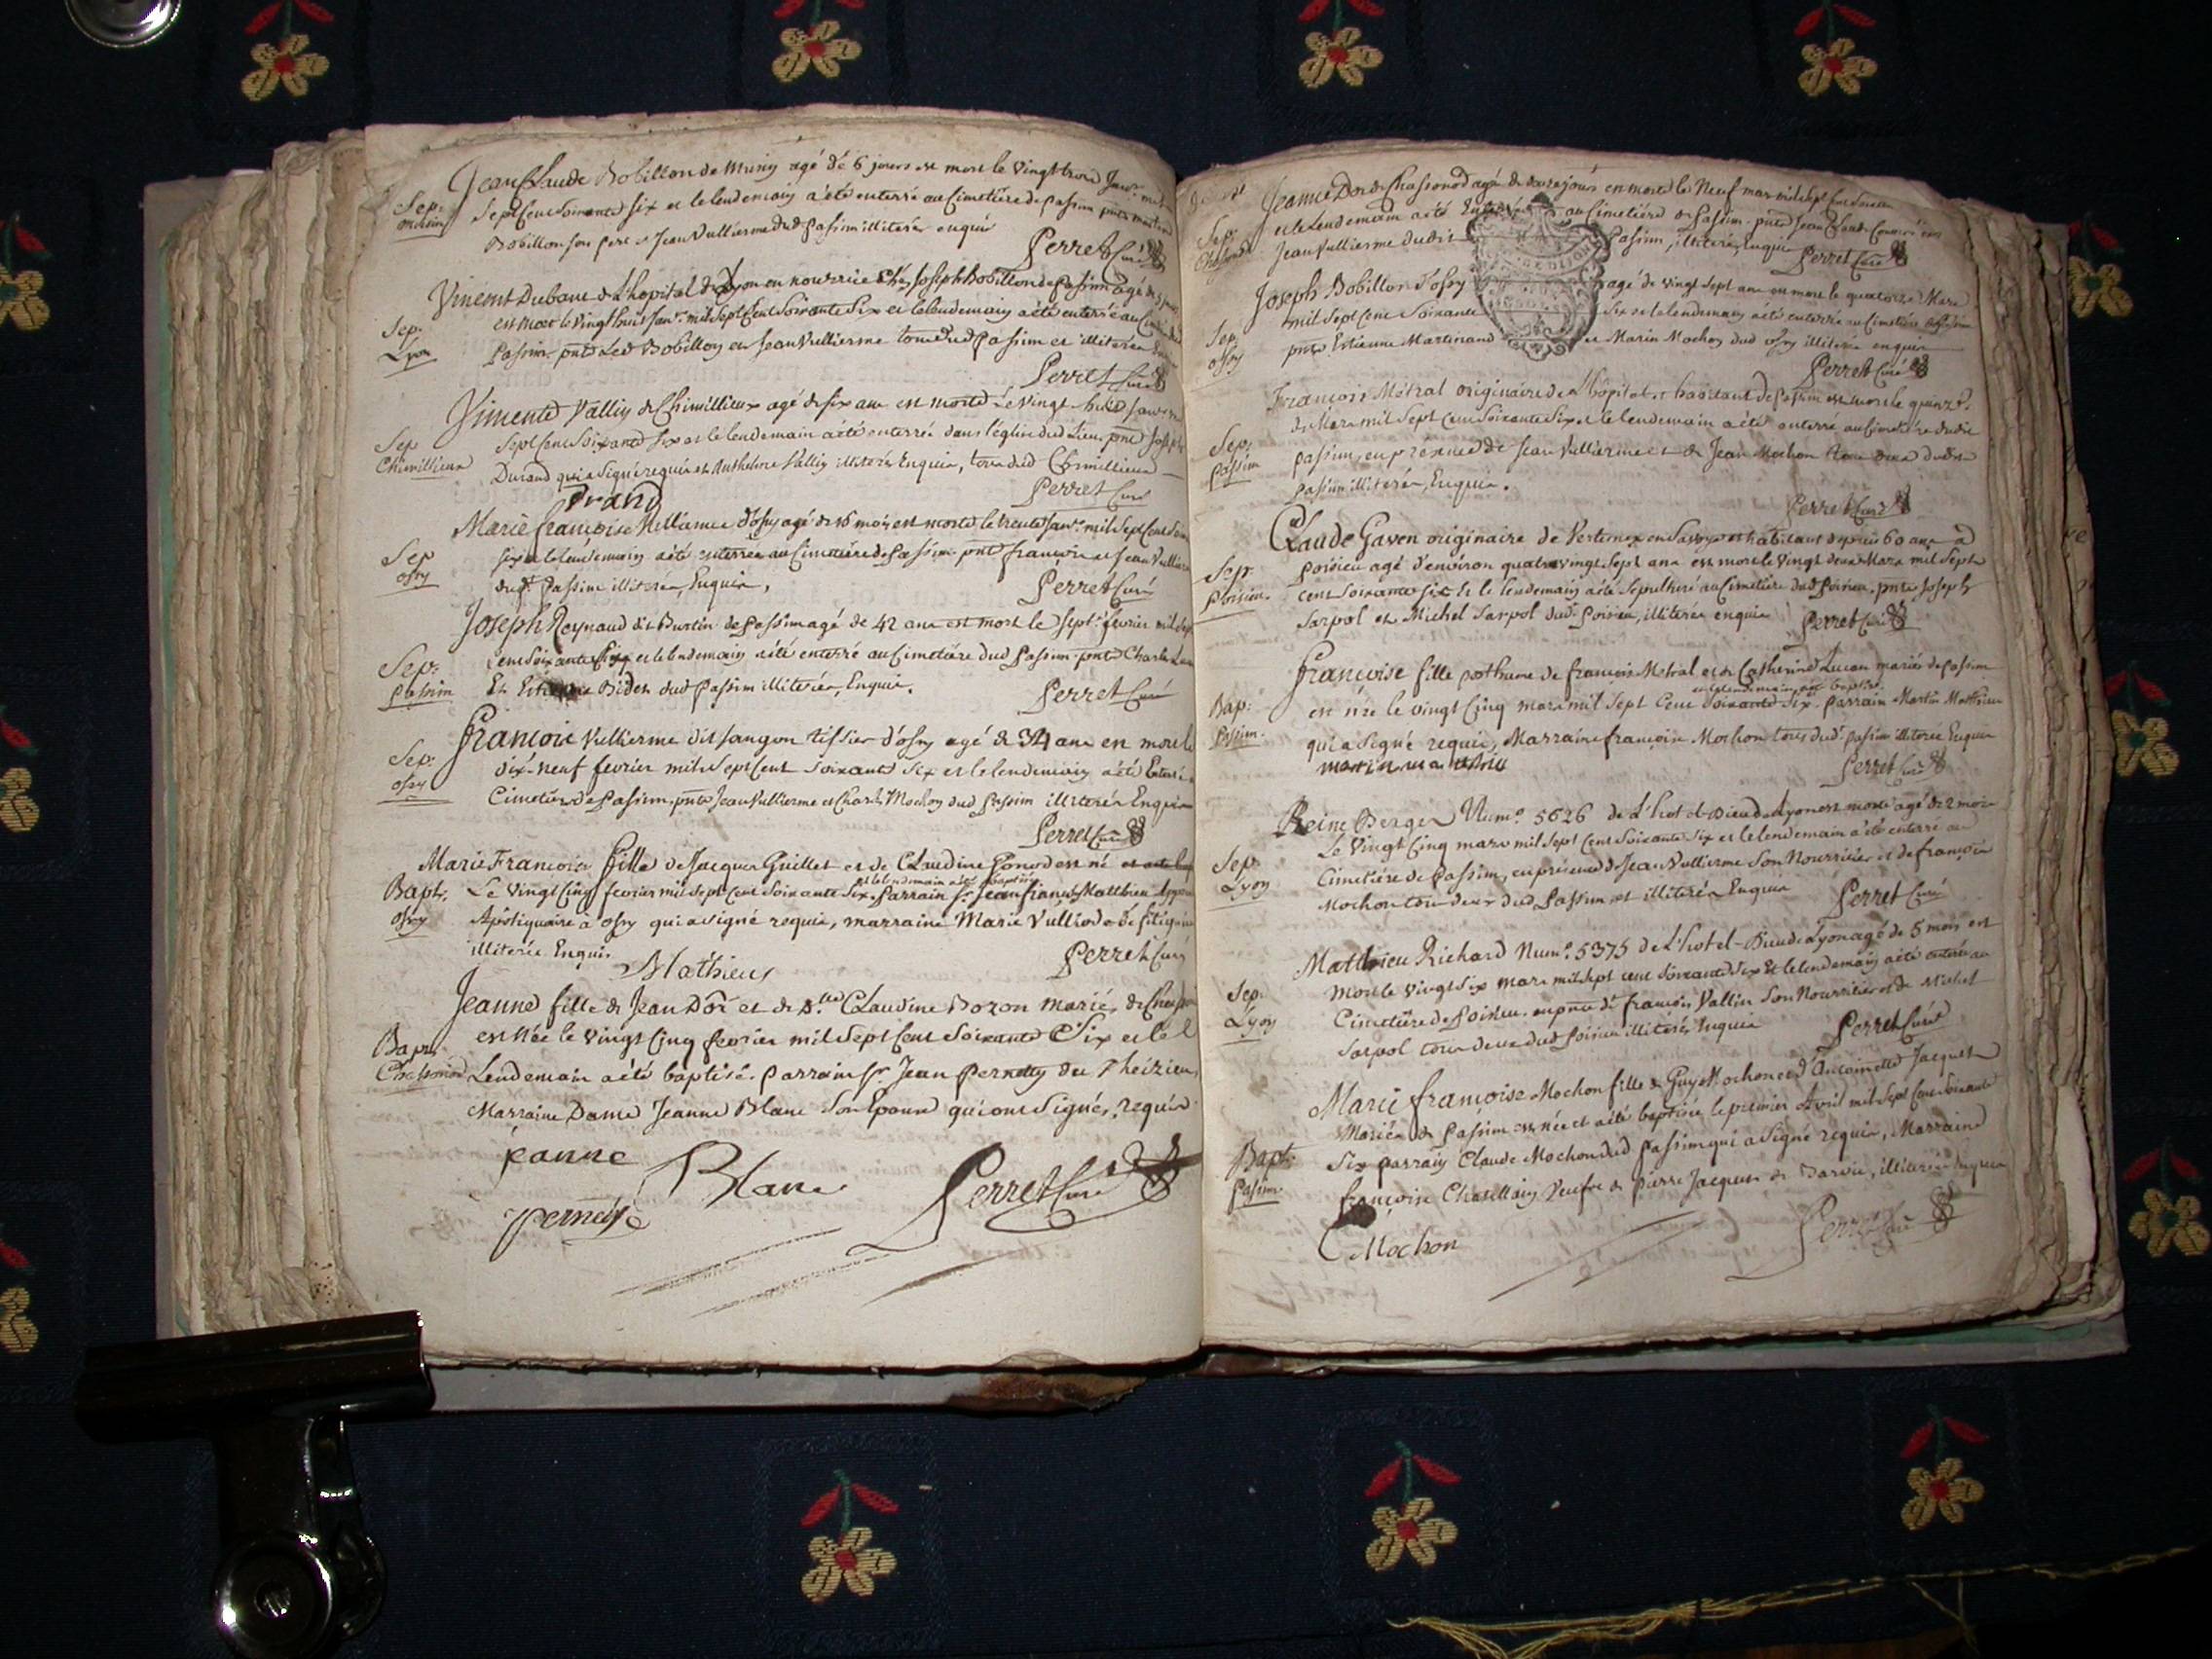 Jean Claude Bobillon de Muny agé de 6 jours est mort le vingt trois Janv.
Sep.
Sept cent soixante six et le lendemain a été enterré au Cimetiére de passim
Bobillon son pere et Jean Vullierme dud passim illiterés enquis
Perret Curé
Vincent Dubane de L'hopital de Lyon en nourrice chés Joseph Bobillon de passim agé de
est mort le vingt huit Janv. mil Sept Cent Soixante Six et le lendemain a été enterré au
Sep.
Lyon
passim. pnts led Bobillon et Jean Vullierme tous dud passim et illiterés
Perret Curé
Vincente Vallin de Chimillieux agé de six ans est morte le vingt huit
Sep
Chimillieux
Sept Cent Soixante Six et le lendemain a été enterrée dans l'église dud Lieu. pnts Joseph
Durand qui a signé requis et Anthelme Vallin illiterés Enquis, tous dud Chimillieux
Perret Curé
Marie françoise d'osry agé de 18 mois est morte le trente Janv. mil Sept Cent
Sep
osry
Six et le lendemain a été enterrée au Cimetiére de passim. pnts françois et Jean
dud. passim illiterés, Enquis,
Perret Curé
Joseph Reynaud dit Burtin de passim agé de 42 ans est mort le sept. fevrier mil
Sep.
passim
Cent Soixante Six et le lendemain a été enterré au Cimetiére dud passim. pnts Charles
Et Biden dud passim illiterés, Enquis.
Perret Curé
françois Vullierme dit sangon tissier d'osry agé de 34 ans en mort le
Sep.
osry
dix-neuf fevrier mil Sept Cent Soixante Six et le lendemain a été Enterré
Cimetiére de passim. pnts Jean Vullierme et Charles Mochon dud passim illiterés Enquis
Perret Curé
Marie Françoise fille de Jacques Guillet et de Claudine Gonod est né
Bapt.
osry
et le lendemain a été baptisée
Le vingt Cinq fevrier mil Sept Cent Soixante Six. parrain Sr. Jean françois Matthieu
Apotiquaire à osry qui a signé requis, marraine Marie
illiterée Enquis
Mathieu
Perret Curé
Jeanne fille de Jean Doi et de Dlle Claudine Bozon mariés de
est Née le vingt Cinq fevrier mil Sept Cent Soixante Six et le
Bapt.
Lendemain a été baptisé. parrain Sr. Jean pernetty de
Marraine Dame Jeanne Blanc Son Epouse qui ont Signés, requis
jeanne Blanc
Perret Curé
Jeanne de Chassonod agée de douze jours en morte le Neuf mars mil Sept Cent
Sep.
et le lendemain a été Enterrée au Cimetiére de passim. pnts Jean Claude
Jean Vullierme dudit passim, illiterés, Enquis
Perret Curé
Joseph Bobillon d'osry agé de vingt Sept ans est mort le quatorze Mars
mil Sept Cent Soixante Six et le lendemain a été enterré au Cimetiére de passim
Sep.
osry
pnts Estienne Martinand et Marin Mochon dud osry illiterés enquis
Perret Curé
François Métral originaire de L'hôpital et habitant de passim est mort le quinze
de Mars mil Sept Cent Soixante Six et le lendemain a été enterré au Cimetiére dudit
Sep.
passim
passim, en présence de Jean Vullierme et de Jean Mochon tous deux dudit
passim illiterés, Enquis.
Perret Curé
Claude Gaven originaire de Vertemex en Savoye et habitant depuis 60 ans a
Sep.
poisieu agé d'environ quatre vingt Sept ans est mort le vingt deux Mars mil Sept
cent Soixante Six Et le lendemain a été Sepulturé au Cimetiére dud poisieu. pnts Joseph
Sarpol et Michel Sarpol dud. poisieu, illiterés enquis
Perret Curé
françoise fille posthume de françois Metral et de Catherine Lucon mariés de passim
et le lendemain a été baptisée
Bap.
passim.
est née le vingt Cinq mars mil Sept Cent Soixante Six. parrain Martin Matthieu
qui a Signé requis, Marraine françoise Mochon tous dud. passim illiterée Enquise
Perret Curé
Reine Berger Num.o 5626 de L'hotel-Dieu de Lyon est morte agé de 2 mois
Le vingt Cinq mars mil Sept Cent Soixante Six et le lendemain a été enterré au
Sep.
Lyon
Cimetiére de passim, en présence de Jean Vullierme Son Nourricier et de françois
Mochon tous deux dud passim et illiterés Enquis
Perret Curé
Matthieu Richard Num.o 5375 de L'hotel-Dieu de Lyon agé de 5 mois est
Mort le vingt Six mars mil Sept cent Soixante Six Et le lendemain a été enterré au
Sep.
Lyon
Cimetiére de Poisieu. en pnce de françois Vallin Son Nourricier et de Michel
Sarpol tous deux dud poisieu illiterés Enquis
Perret Curé
Marie françoise Mochon fille de Guy Mochon et d'Antoinette Jacquet
Mariés de passim est née et a été baptisée le premier Avril mil Sept Cent Soixante
Bapt.
passim.
Six parrain Claude Mochon dud passim qui a Signé requis, Marraine
françoise Chatillon Veufve de pierre Jacquet de illiterée Enquise
C Mochon
Perret Curé